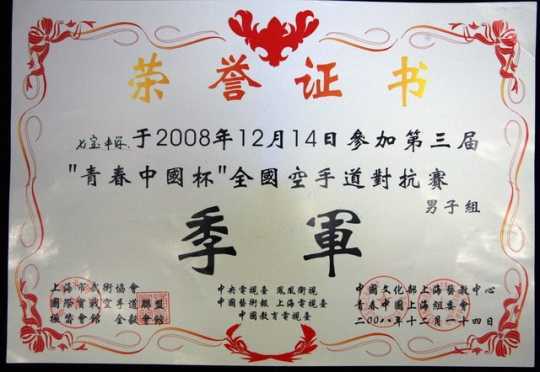 荣誉证书
于2008年12月14日參加第三届
"青春中國杯"全國空手道對抗賽
男子組
季軍
上海市武術協會
國際實戰空手道聯盟
極岩會館 全毅會館
中央電視臺 鳳凰衛視
中國藝術報 上海電視臺
中國教育電視臺
中國文化部上海藝教中心
青春中國上海組委會
二〇〇八年十二月一十四日